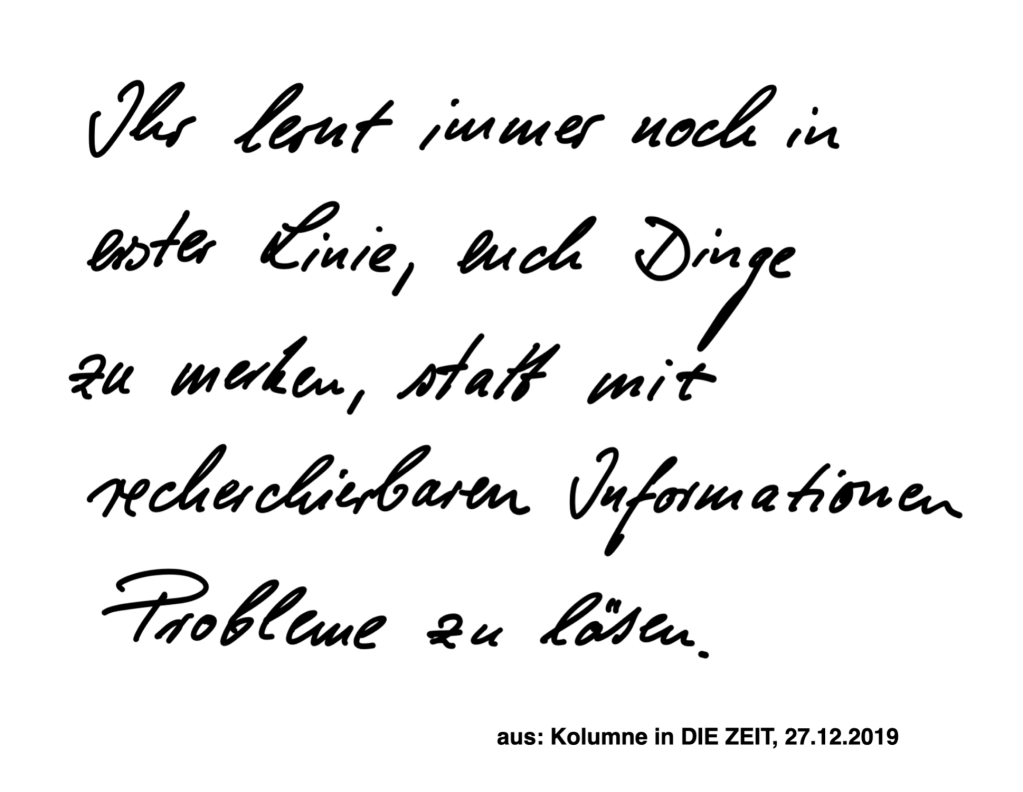 Ihr lernt immer noch in
erster Linie, euch Dinge
zu merken, statt mit
recherchierbaren Informationen
Probleme zu lösen.
aus: Kolumne in DIE ZEIT, 27.12.2019